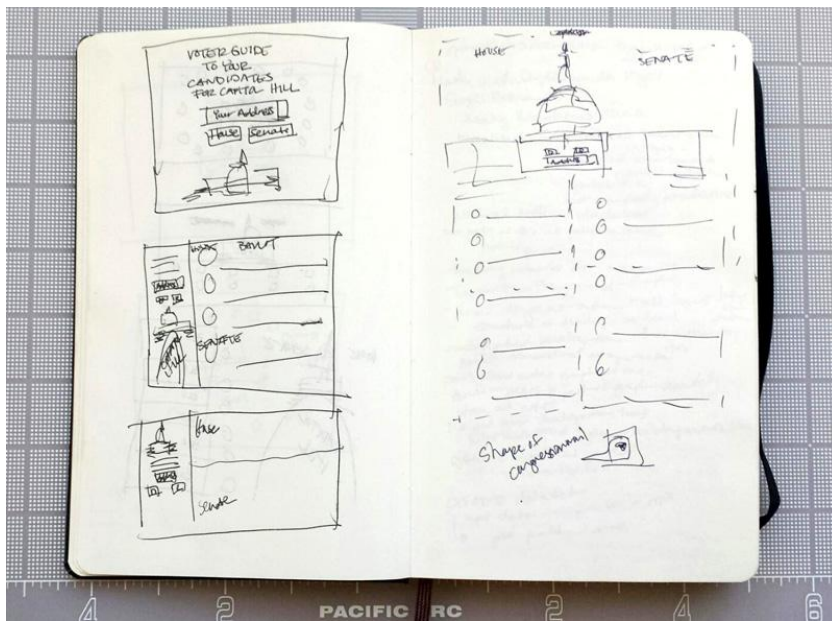 VOTER GUIDE
TO YOUR
CANDIDATES
FOR CAPITOL HILL
Your Address
House Senate
BALLOT
SENATE
House
Senate
HOUSE
SENATE
Shape of
congressional
4 2 PACIFIC RC 2 4 6